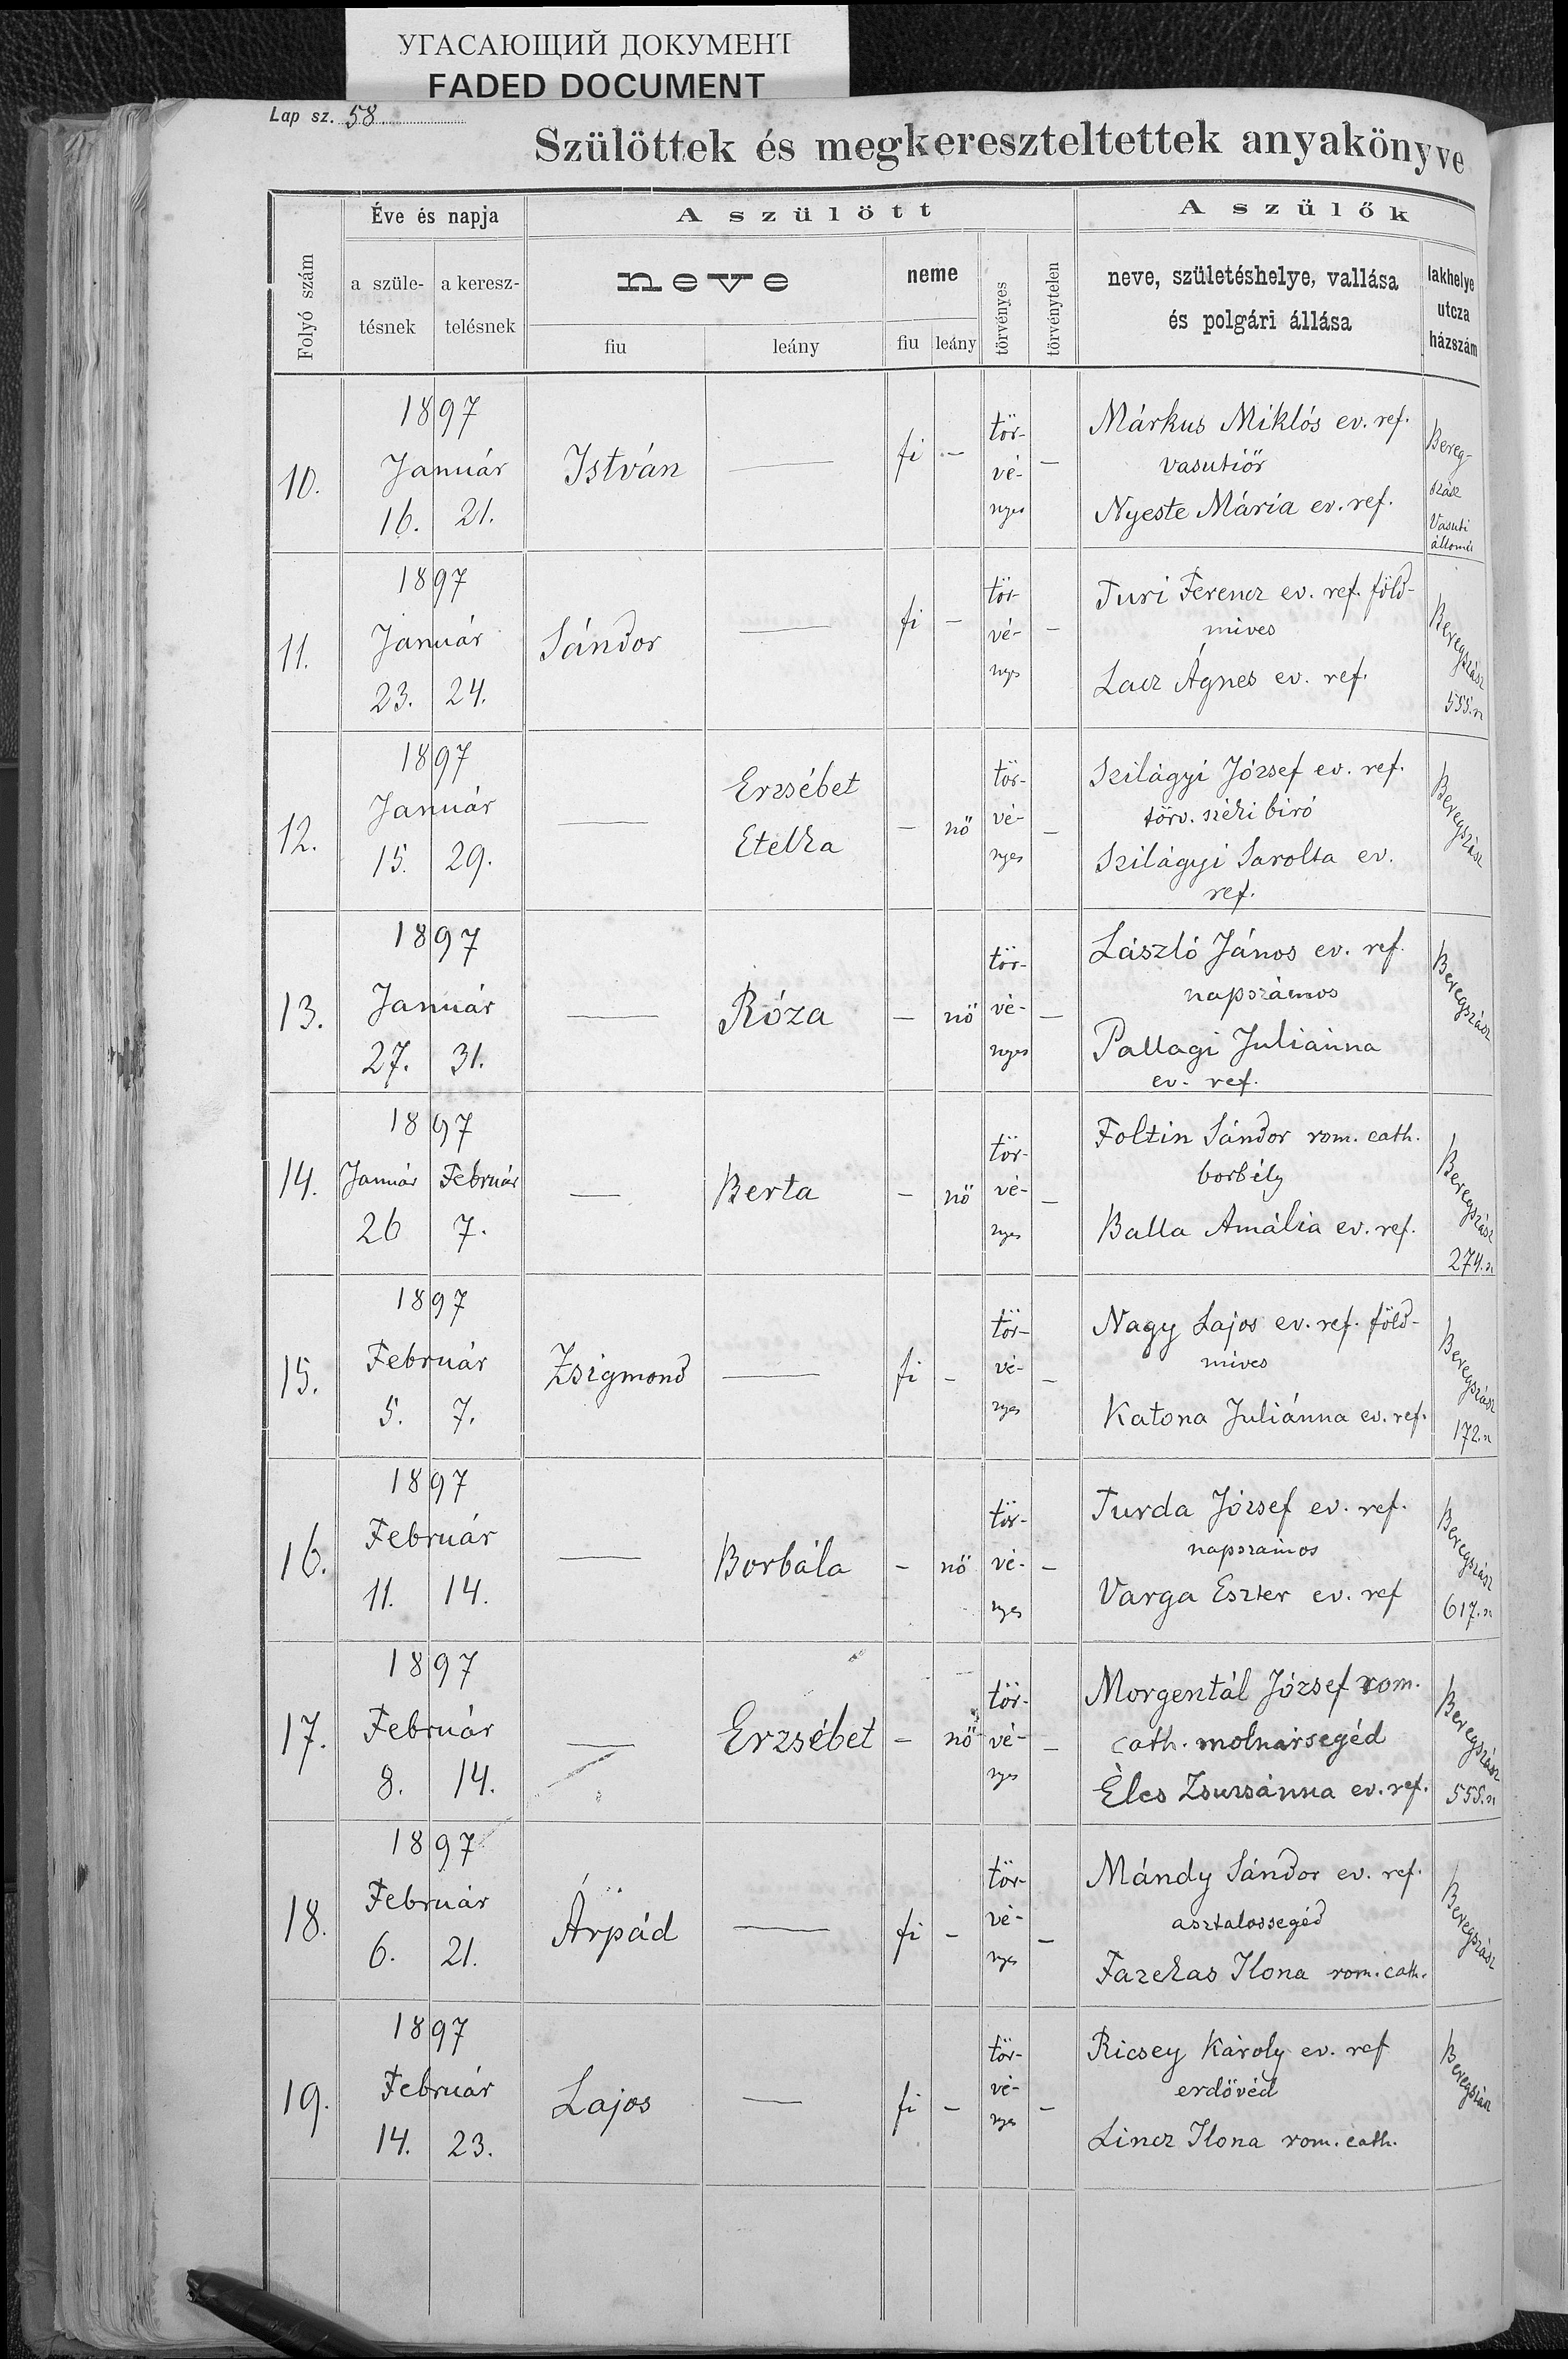 УГАСАЮЩИЙ ДОКУМЕНТ
FADED DOCUMENT
Lap sz. 58.
Szülöttek és megkereszteltettek anyakönyve
Folyó szám
Éve és napja
a szüle-
tésnek
a keresz-
telésnek
A szülött
neve
fiu
leány
neme
fiu
leány
törvényes
törvénytelen
A szülők
neve, születéshelye, vallása
és polgári állása
lakhelye
utcza
házszám
10.
1897
Január
16. 21.
István
—
fi —
tör-
vé-
nyes
—
Márkus Miklós ev. ref.
vasutiőr
Nyeste Mária ev. ref.
Bereg-
szász
Vasuti
állomás
11.
1897
Január
23. 24.
Sándor
—
fi —
tör-
vé-
nyes
—
Turi Ferencz ev. ref. föld-
mives
Lacz Ágnes ev. ref.
Beregszász
555. n
12.
1897
Január
15. 29.
—
Erzsébet
Etelka
— nő
tör-
vé-
nyes
—
Szilágyi József ev. ref.
törv. széki biró
Szilágyi Sarolta ev.
ref.
Beregszász
13.
1897
Január
27. 31.
—
Róza
— nő
tör-
vé-
nyes
—
László János ev. ref.
napszámos
Pallagi Juliánna
ev. ref.
Beregszász
14.
1897
Január Február
26 7.
—
Berta
— nő
tör-
vé-
nyes
—
Foltin Sándor rom. cath.
borbély
Balla Amália ev. ref.
Beregszász
274. n
15.
1897
Február
5. 7.
Zsigmond
—
fi —
tör-
vé-
nyes
—
Nagy Lajos ev. ref. föld-
mives
Katona Juliánna ev. ref.
Beregszász
172. n
16.
1897
Február
11. 14.
—
Borbála
— nő
tör-
vé-
nyes
—
Turda József ev. ref.
napszámos
Varga Eszter ev. ref
Beregszász
617. n
17.
1897
Február
8. 14.
—
Erzsébet
— nő
tör-
vé-
nyes
—
Morgentál József rom.
cath. molnársegéd
Éles Zsuzsánna ev. ref.
Beregszász
555. n
18.
1897
Február
6. 21.
Árpád
—
fi —
tör-
vé-
nyes
—
Mándy Sándor ev. ref.
asztalossegéd
Fazekas Ilona rom. cath.
Beregszász
19.
1897
Február
14. 23.
Lajos
—
fi —
tör-
vé-
nyes
—
Ricsey Károly ev. ref
erdővéd
Lincz Ilona rom. cath.
Beregszász